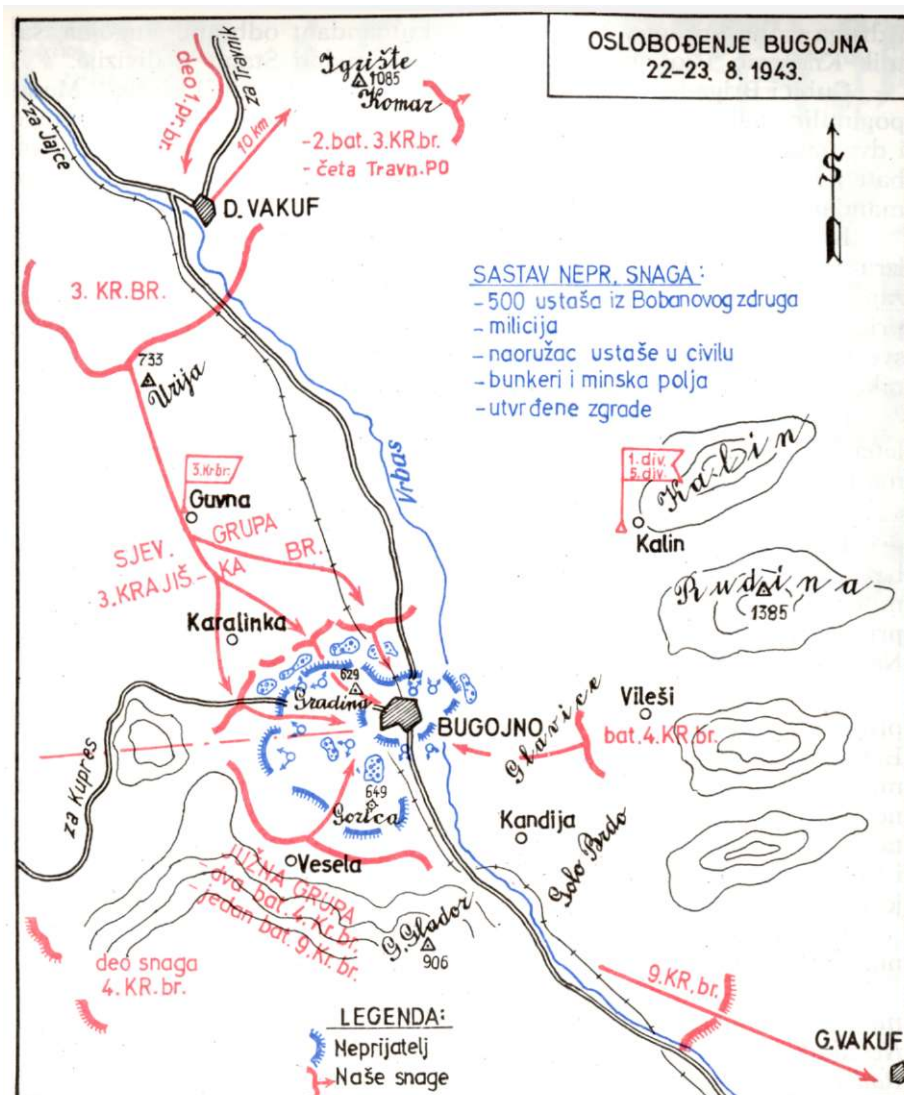 OSLOBOĐENJE BUGOJNA
22–23. 8. 1943.
S
za Jajce
za Travnik
deo 1. pr. br.
10 km
Igrište
1085
Komar
-2. bat. 3. KR. br.
- četa Travn. PO
D. VAKUF
3. KR. BR.
733
Urija
SASTAV NEPR. SNAGA:
-500 ustaša iz Bobanovog zdruga
- milicija
- naoružac ustaše u civilu
- bunkeri i minska polja
-utvrđene zgrade
Vrbas
3. Kr br.
Guvna
SJEV. GRUPA
3. KRAJIŠ-KA BR.
Karalinka
1. div.
5. div.
Kalin
Kalin
Rudina
1385
629
Gradina
BUGOJNO
Glavice
Vileši
bat. 4. KR. br.
za Kupres
649
Gorica
Kandija
Golo Brdo
Vesela
JUŽNA GRUPA
- dva bat. 4. Kr. br.
- jedan bat. 9. Kr. br.
G. Glador
906
deo snaga
4. KR. br.
9. KR. br.
G. VAKUF
LEGENDA:
Neprijatelj
Naše snage